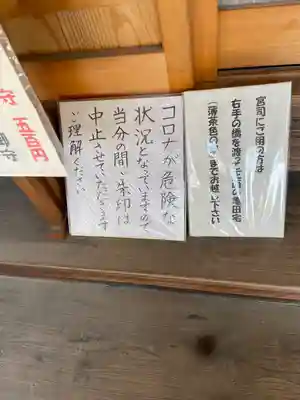 宮司にご用の方は
右手の橋を渡
(薄茶色の
までお越し下さい
コロナが危険な
状況となっていますので
当分の間、朱印は
中止させていただきます
ご理解ください
五百円